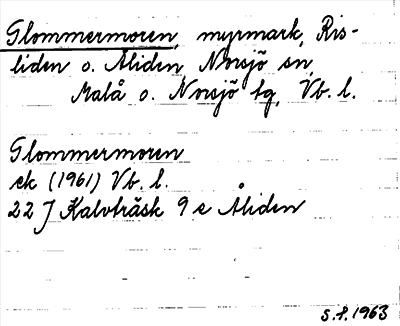 Glommermoren, myrmark, Ris-
liden o. Åliden, Norsjö sn,
Malå o. Norsjö tg, Vb. l.
Glommermoren
ek (1961) Vb. l.
22 J Kalvträsk 9 e Åliden
S.f. 1963